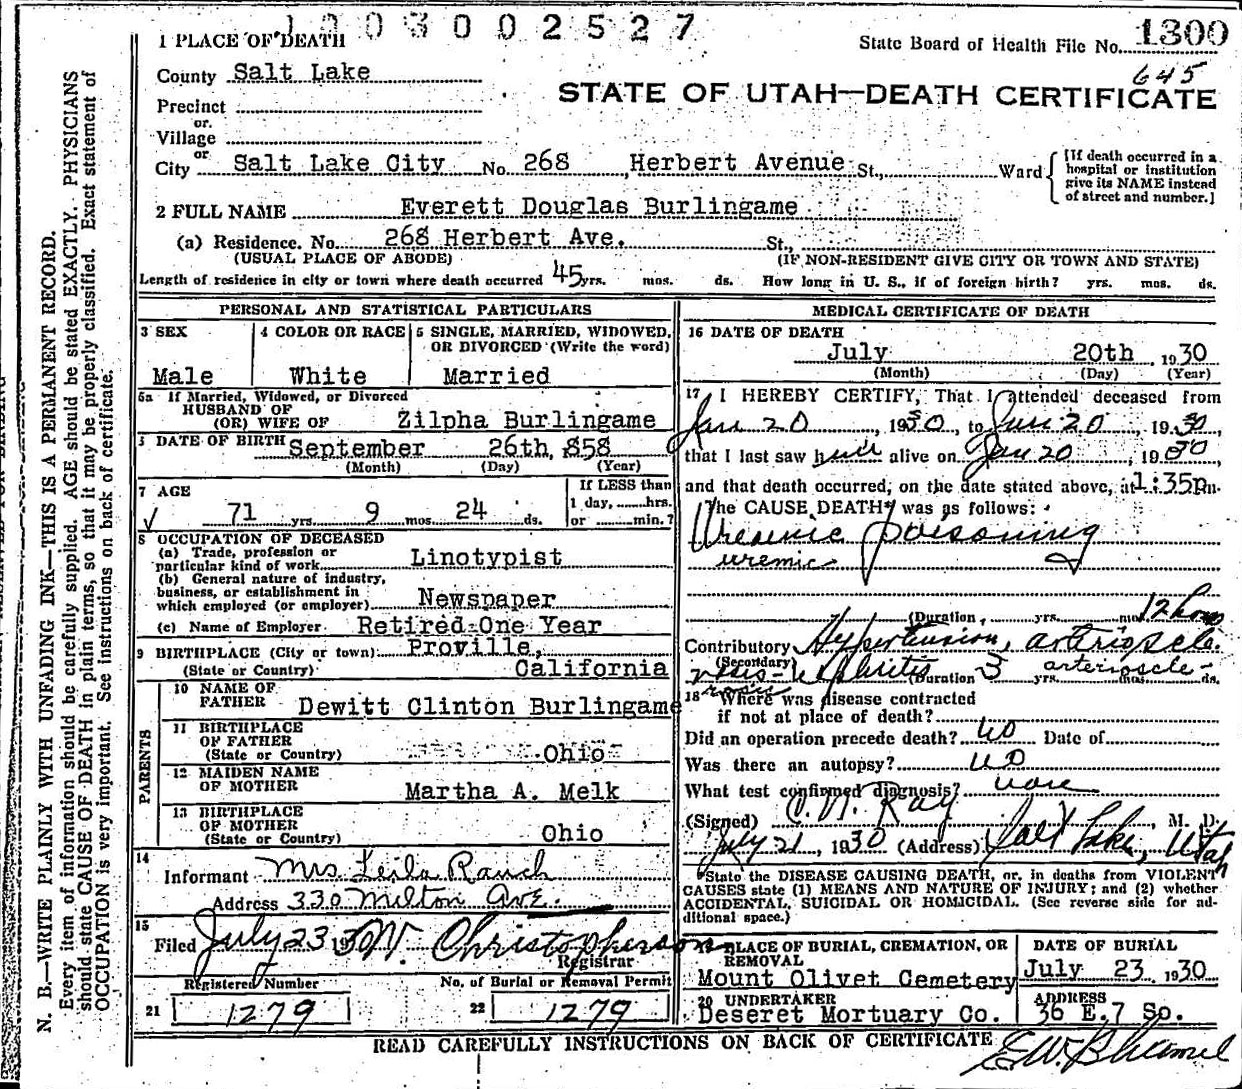 1 0 0 3 0 0 2 5 2 7
State Board of Health File No. 1300
645
STATE OF UTAH—DEATH CERTIFICATE
1 PLACE OF DEATH
County Salt Lake
Precinct
or
Village
or
City Salt Lake City No. 268, Herbert Avenue St., Ward
[If death occurred in a hospital or institution give its NAME instead of street and number.]
2 FULL NAME Everett Douglas Burlingame
(a) Residence. No. 268 Herbert Ave. St.,
(USUAL PLACE OF ABODE) (IF NON-RESIDENT GIVE CITY OR TOWN AND STATE)
Length of residence in city or town where death occurred 45 yrs. mos. ds. How long in U. S., if of foreign birth? yrs. mos. ds.
PERSONAL AND STATISTICAL PARTICULARS
3 SEX
Male
4 COLOR OR RACE
White
5 SINGLE, MARRIED, WIDOWED,
OR DIVORCED (Write the word)
Married
5a If Married, Widowed, or Divorced
HUSBAND OF
(OR) WIFE OF Zilpha Burlingame
DATE OF BIRTH September 26th, 858
(Month) (Day) (Year)
7 AGE
71 yrs. 9 mos. 24 ds.
If LESS than
1 day, hrs.
or min.?
8 OCCUPATION OF DECEASED
(a) Trade, profession or
particular kind of work Linotypist
(b) General nature of industry,
business, or establishment in
which employed (or employer) Newspaper
(c) Name of Employer Retired One Year
9 BIRTHPLACE (City or town) Proville,
(State or Country) California
PARENTS
10 NAME OF
FATHER Dewitt Clinton Burlingame
11 BIRTHPLACE
OF FATHER
(State or Country) Ohio
12 MAIDEN NAME
OF MOTHER Martha A. Melk
13 BIRTHPLACE
OF MOTHER
(State or Country) Ohio
14
Informant Mrs. Leila Rauch
Address 330 Milton Ave.
15
Filed July 23 1930 W. Christopherson
Registrar
Registered Number
21 1279
No. of Burial or Removal Permit
22 1279
MEDICAL CERTIFICATE OF DEATH
16 DATE OF DEATH
July 20th, 1930
(Month) (Day) (Year)
17 I HEREBY CERTIFY, That I attended deceased from
Jan 20, 1930, to Jun 20, 1930,
that I last saw him alive on Jan 20, 1930,
and that death occurred, on the date stated above, at 1:35p m.
The CAUSE DEATH* was as follows:
Uremic poisoning
uremic
(Duration, yrs. mos. 12 hours
Contributory Hypertension, arteriosclerosis
(Secondary) nephritis Duration 3 yrs. mos. ds.
arterioscle-
rosis
18 Where was disease contracted
if not at place of death?
Did an operation precede death? no Date of
Was there an autopsy? no
What test confirmed diagnosis? none
(Signed) C. N. Ray, M. D.
July 21, 1930 (Address) Salt Lake, Utah
State the DISEASE CAUSING DEATH, or, in deaths from VIOLENT
CAUSES state (1) MEANS AND NATURE OF INJURY; and (2) whether
ACCIDENTAL, SUICIDAL OR HOMICIDAL. (See reverse side for ad-
ditional space.)
PLACE OF BURIAL, CREMATION, OR
REMOVAL
Mount Olivet Cemetery
DATE OF BURIAL
July 23, 1930
20 UNDERTAKER
Deseret Mortuary Co.
ADDRESS
36 E. 7 So.
READ CAREFULLY INSTRUCTIONS ON BACK OF CERTIFICATE
N. B.—WRITE PLAINLY WITH UNFADING INK—THIS IS A PERMANENT RECORD.
Every item of information should be carefully supplied. AGE should be stated EXACTLY. PHYSICIANS
should state CAUSE OF DEATH in plain terms, so that it may be properly classified. Exact statement of
OCCUPATION is very important. See instructions on back of certificate.